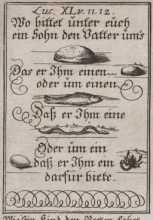 Luc. XI. v. 11. 12.
Wo bittet unter euch
ein Sohn den Vatter ums
Das er Ihm einen
oder um einen
Daß er Ihm eine
Oder um ein
daß er Ihm ein
darfür biete.